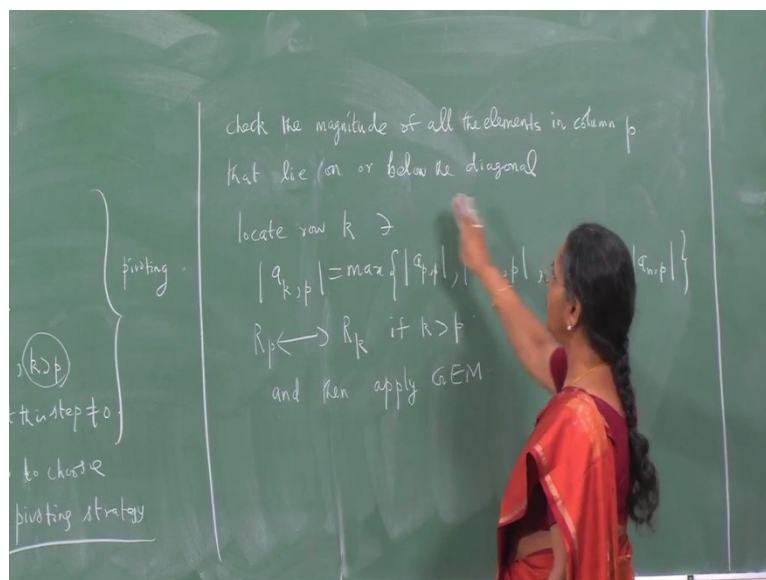 pivoting
, k>p
this step ≠ 0.
to choose
pivoting strategy
check the magnitude of all the elements in column p
that lie on or below the diagonal
locate row k ∋
|a_{k,p}| = max{|a_{p,p}|, |a_{n,p}|}
R_p ⟷ R_k if k>p
and then apply GEM